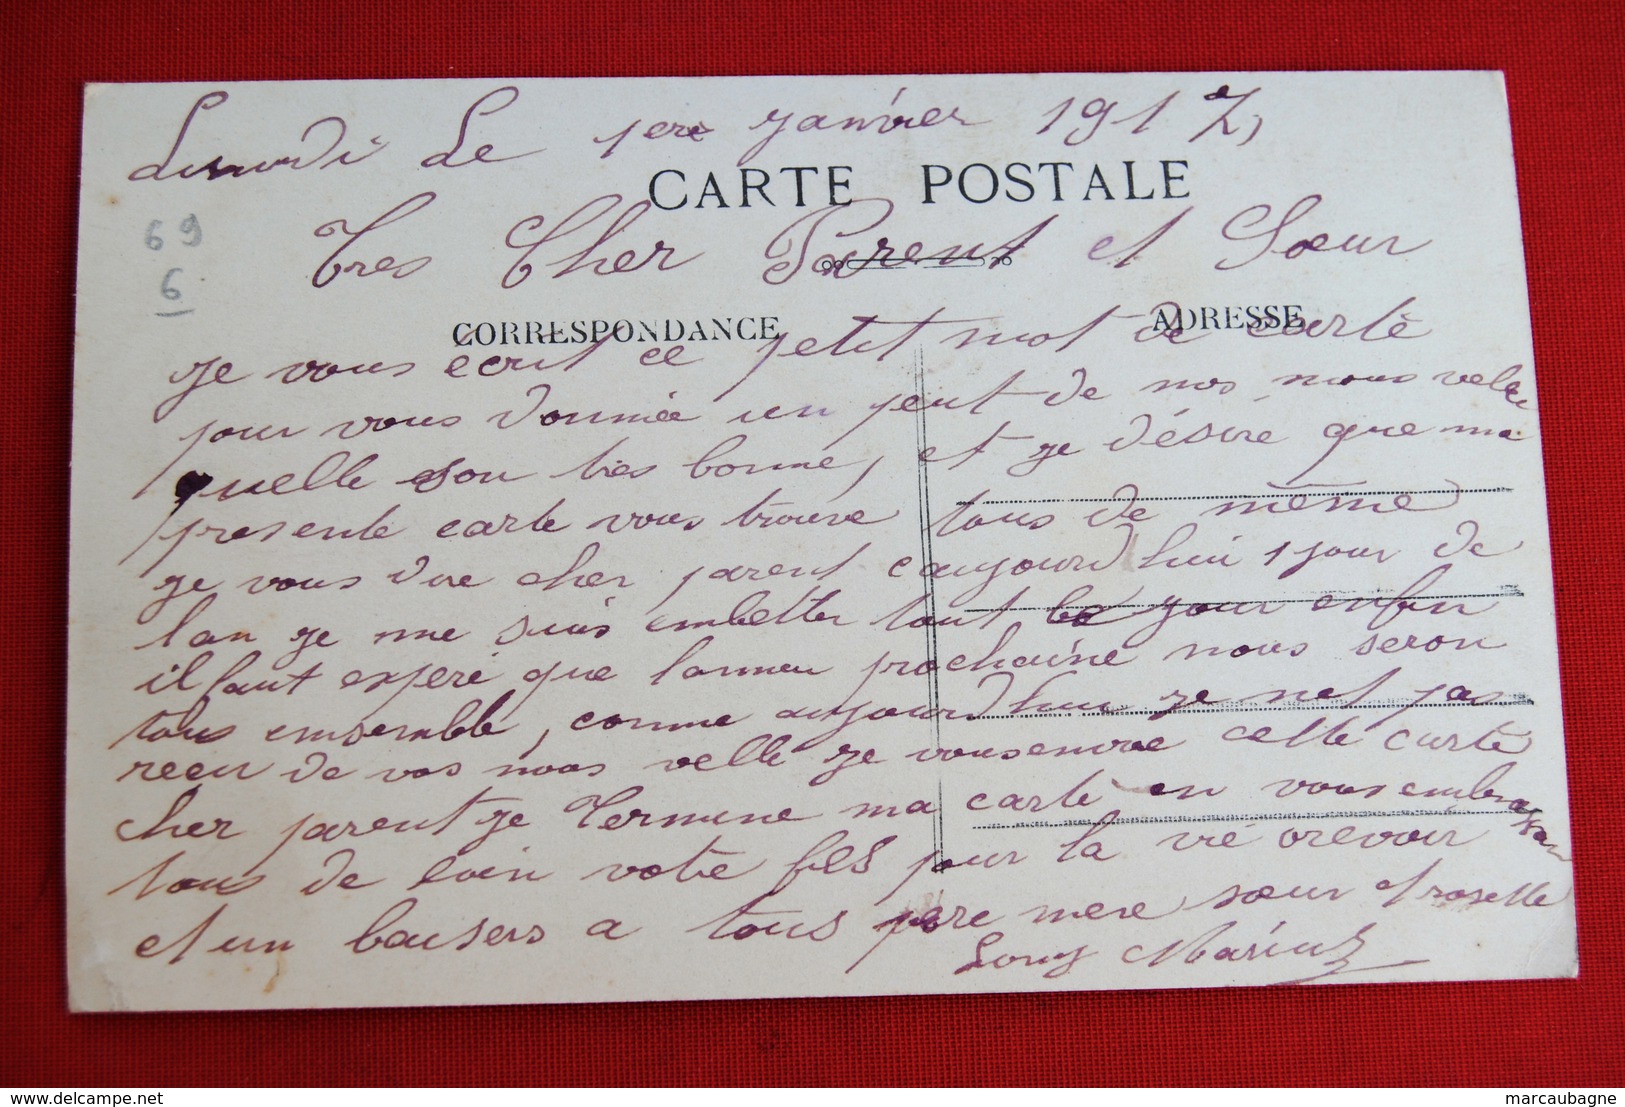 Lundi Le 1ere janvier 1917,
CARTE POSTALE
69
6
Tres Cher Parent et Sœur
CORRESPONDANCE
ADRESSE
je vous ecrit ce petit mot de carte
pour vous donnée un peut de nos nous velle
quelle son tres bonne, et je désiré que ma
presente carte vous trouve tous de même
je vous dire cher parent caujourdhui 1 jour de
lan je me suis embetter tout le jour enfin
il faut esperé que lanneu prochaine nous seron
tous ensemble, comme aujourdhui je net pas
reeu de vos nous velle je vousenvoie cette carte
cher parent je Termine ma carte en vousembrassan
tous de loin votre fils pour la vie orevoir
et un baisers a tous pere mere sœur et rosette
Louis Marius
delcampe.net
marcaubagne